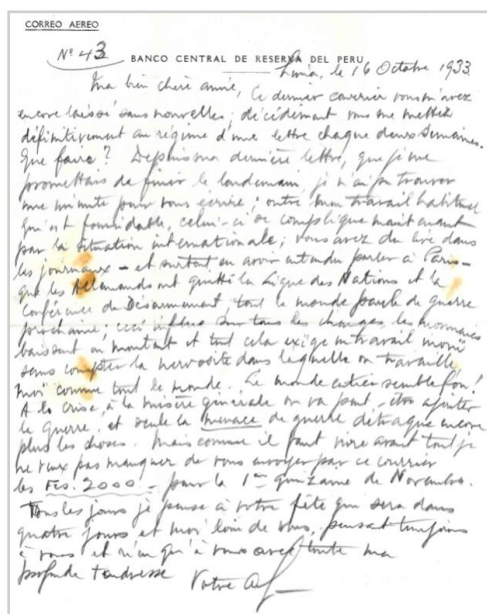 CORREO AEREO
Nº 43
BANCO CENTRAL DE RESERVA DEL PERU
Lima, le 16 Octobre 1933
Ma bien chère amie, Ce dernier courrier vous m'avez
encore laissé sans nouvelles; décidément vous me mettez
définitivement au régime d'une lettre chaque deux semaines.
Que faire? Depuis ma dernière lettre, que je me
promettais de finir le lendemain, je n'ai pu trouver
une minute pour vous écrire; outre mon travail habituel
qui est formidable, celui-ci se complique maintenant
par la situation internationale; vous avez du lire dans
les journaux - et surtout en avoir entendu parler à Paris -
que les Allemands ont quitté la Ligue des Nations et la
Conférence du Désarmement, tout le monde parle de guerre
prochaine; ceci influe sur tous les changes, les monnaies
baissent ou montent et tout cela exige un travail
sans compter la nervosité dans laquelle on travaille,
moi comme tout le monde. Le monde entier semble fou!
A la crise, à la misère générale on va peut-être ajouter
la guerre, et seule la menace de guerre détraque encore
plus les choses. Mais comme il faut vivre avant tout je
ne veux pas manquer de vous envoyer par ce courrier
les Fcs. 2000 - pour la 1ère quinzaine de Novembre.
Tous les jours je pense à votre fête qui sera dans
quatre jours et moi loin de vous, pensant toujours
à vous et rien qu'à vous avec toute ma
profonde tendresse
Votre